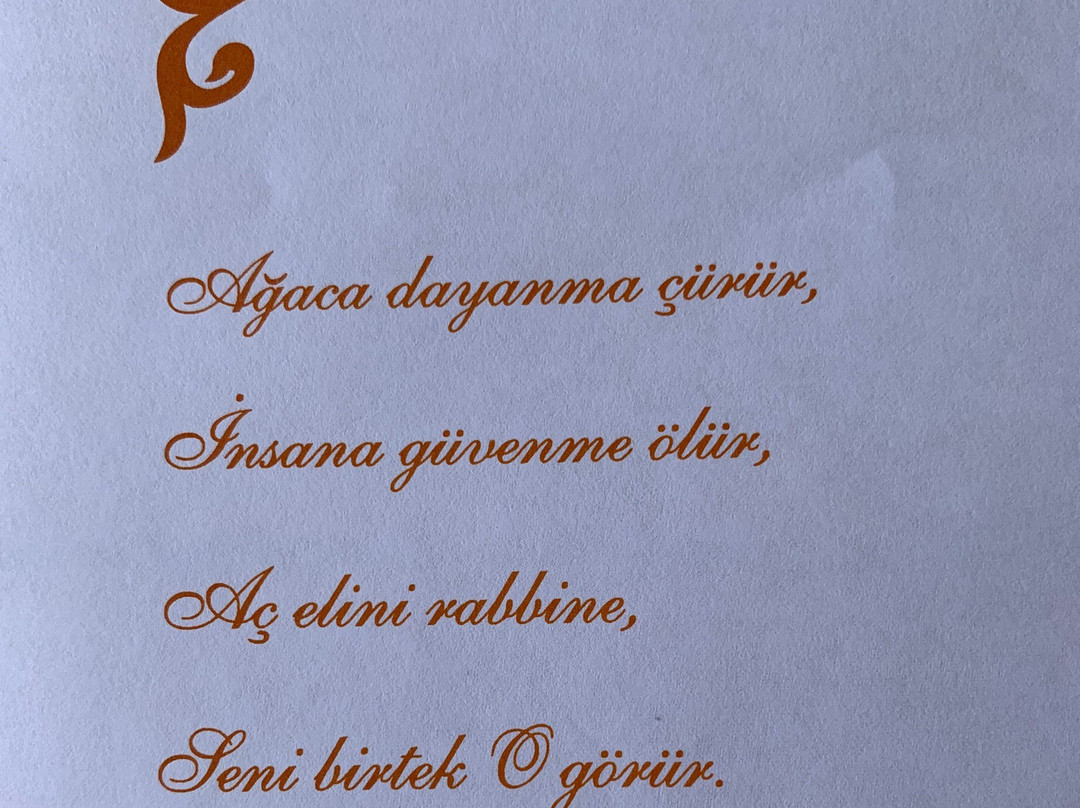 Ağaca dayanma çürür,
İnsana güvenme ölür,
Aç elini rabbine,
Seni birtek O görür.